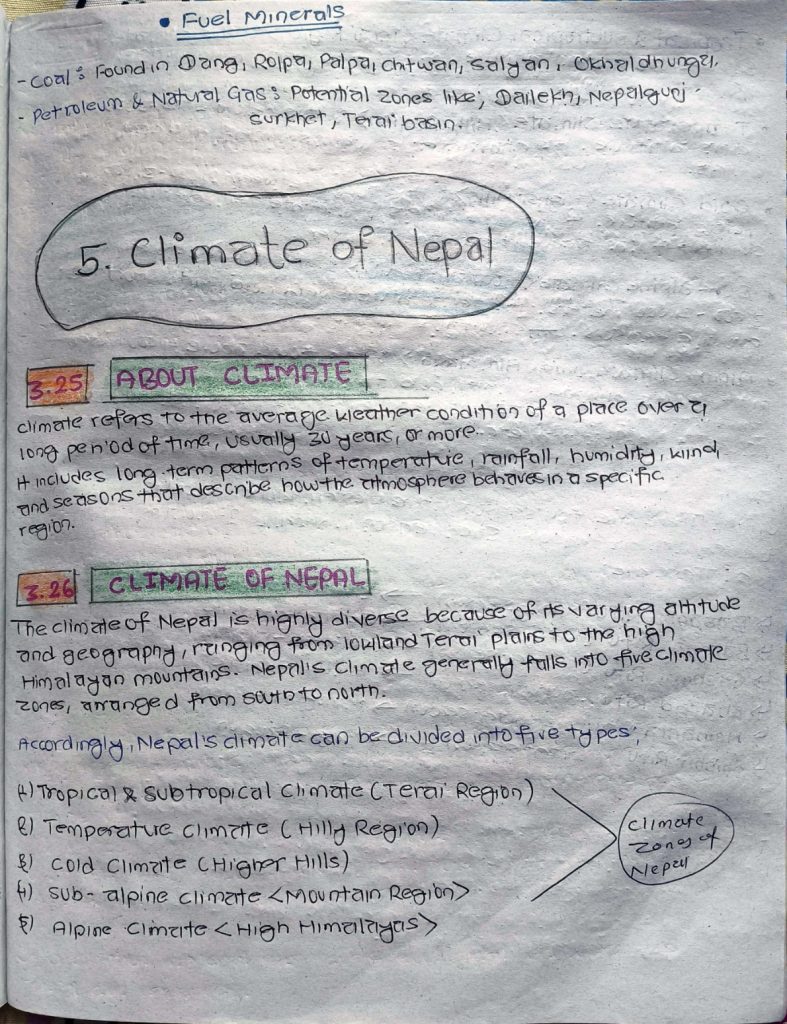 • Fuel Minerals
- Coal : Found in Dang, Rolpa, Palpa, Chitwan, Salyan, Okhaldhunga.
- Petroleum & Natural Gas : Potential zones like; Dailekh, Nepalgunj
surkhet, Terai basin.
5. Climate of Nepal
3.25 ABOUT CLIMATE
climate refers to the average weather condition of a place over a
long period of time, usually 30 years, or more.
It includes long term patterns of temperature, rainfall, humidity, wind,
and seasons that describe how the atmosphere behaves in a specific
region.
3.26 CLIMATE OF NEPAL
The climate of Nepal is highly diverse because of its varying altitude
and geography, ranging from lowland Terai plains to the high
Himalayan mountains. Nepal's climate generally falls into five climate
zones, arranged from south to north.
Accordingly, Nepal's climate can be divided into five types;
1) Tropical & subtropical climate (Terai Region)
2) Temperature climate (Hilly Region)
3) Cold Climate (Higher Hills)
4) Sub-alpine climate <Mountain Region>
5) Alpine Climate <High Himalayas>
Climate
Zones of
Nepal